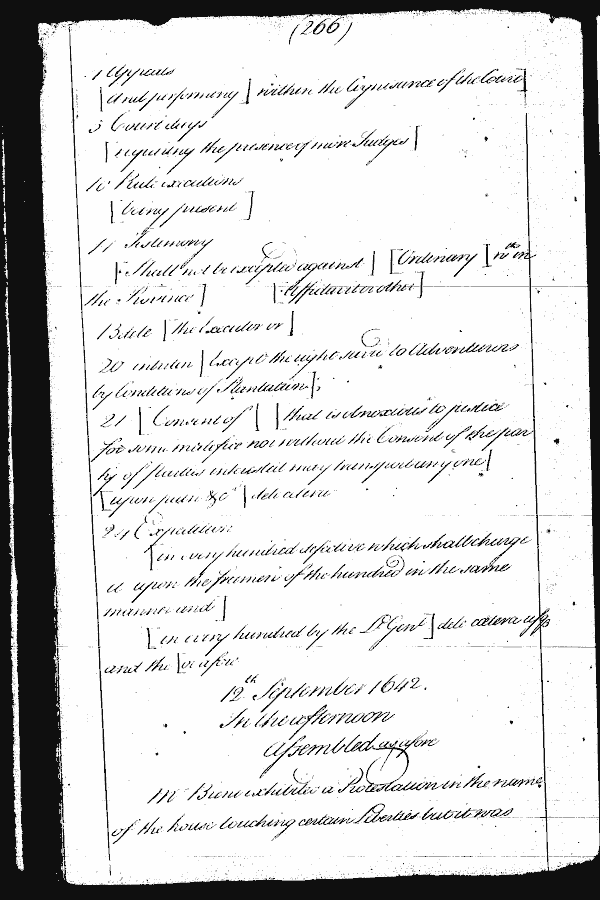 (266)
1 Appeals
[and performing] within the Cognisance of the Court]
5 Court days
[requiring the presence of more Judges]
10 Rule executions
[being present]
11 Testimony
[Shall not be excepted against] [Ordinary] [wth in
the Province] [Affidavit or other]
13 dele [the Executor or]
20 [Except the right sure to Adventurers
by Conditions of Plantation];
21 [Consent of] [that is obnoxious to justice
for some malefice nor without the Consent of the par
ty of parties interested may transport any one]
[upon pain &ca] dele
24 Expedition
[in every hundred which shall charge
it upon the freemen of the hundred in the same
manner and]
[in every hundred by the Lt Genl] dele
and the [or afore
12th September 1642.
In the afternoon
Assembled as afore
Mr exhibited a Protestation in the name
of the house touching certain Liberties but it was